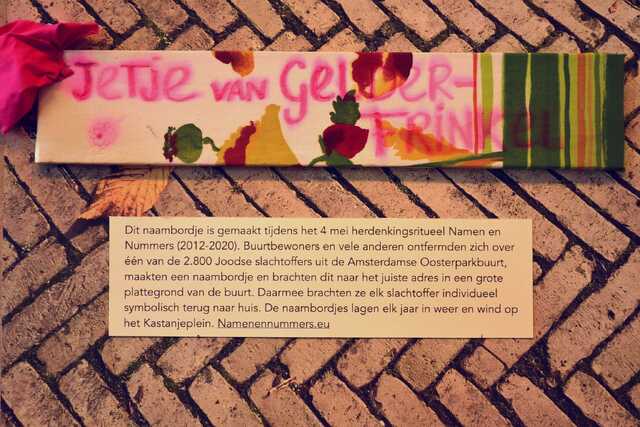 JETJE VAN GELDER-
FRINKEL
Dit naambordje is gemaakt tijdens het 4 mei herdenkingsritueel Namen en
Nummers (2012-2020). Buurtbewoners en vele anderen ontfermden zich over
één van de 2.800 Joodse slachtoffers uit de Amsterdamse Oosterparkbuurt,
maakten een naambordje en brachten dit naar het juiste adres in een grote
plattegrond van de buurt. Daarmee brachten ze elk slachtoffer individueel
symbolisch terug naar huis. De naambordjes lagen elk jaar in weer en wind op
het Kastanjeplein. Namenennummers.eu